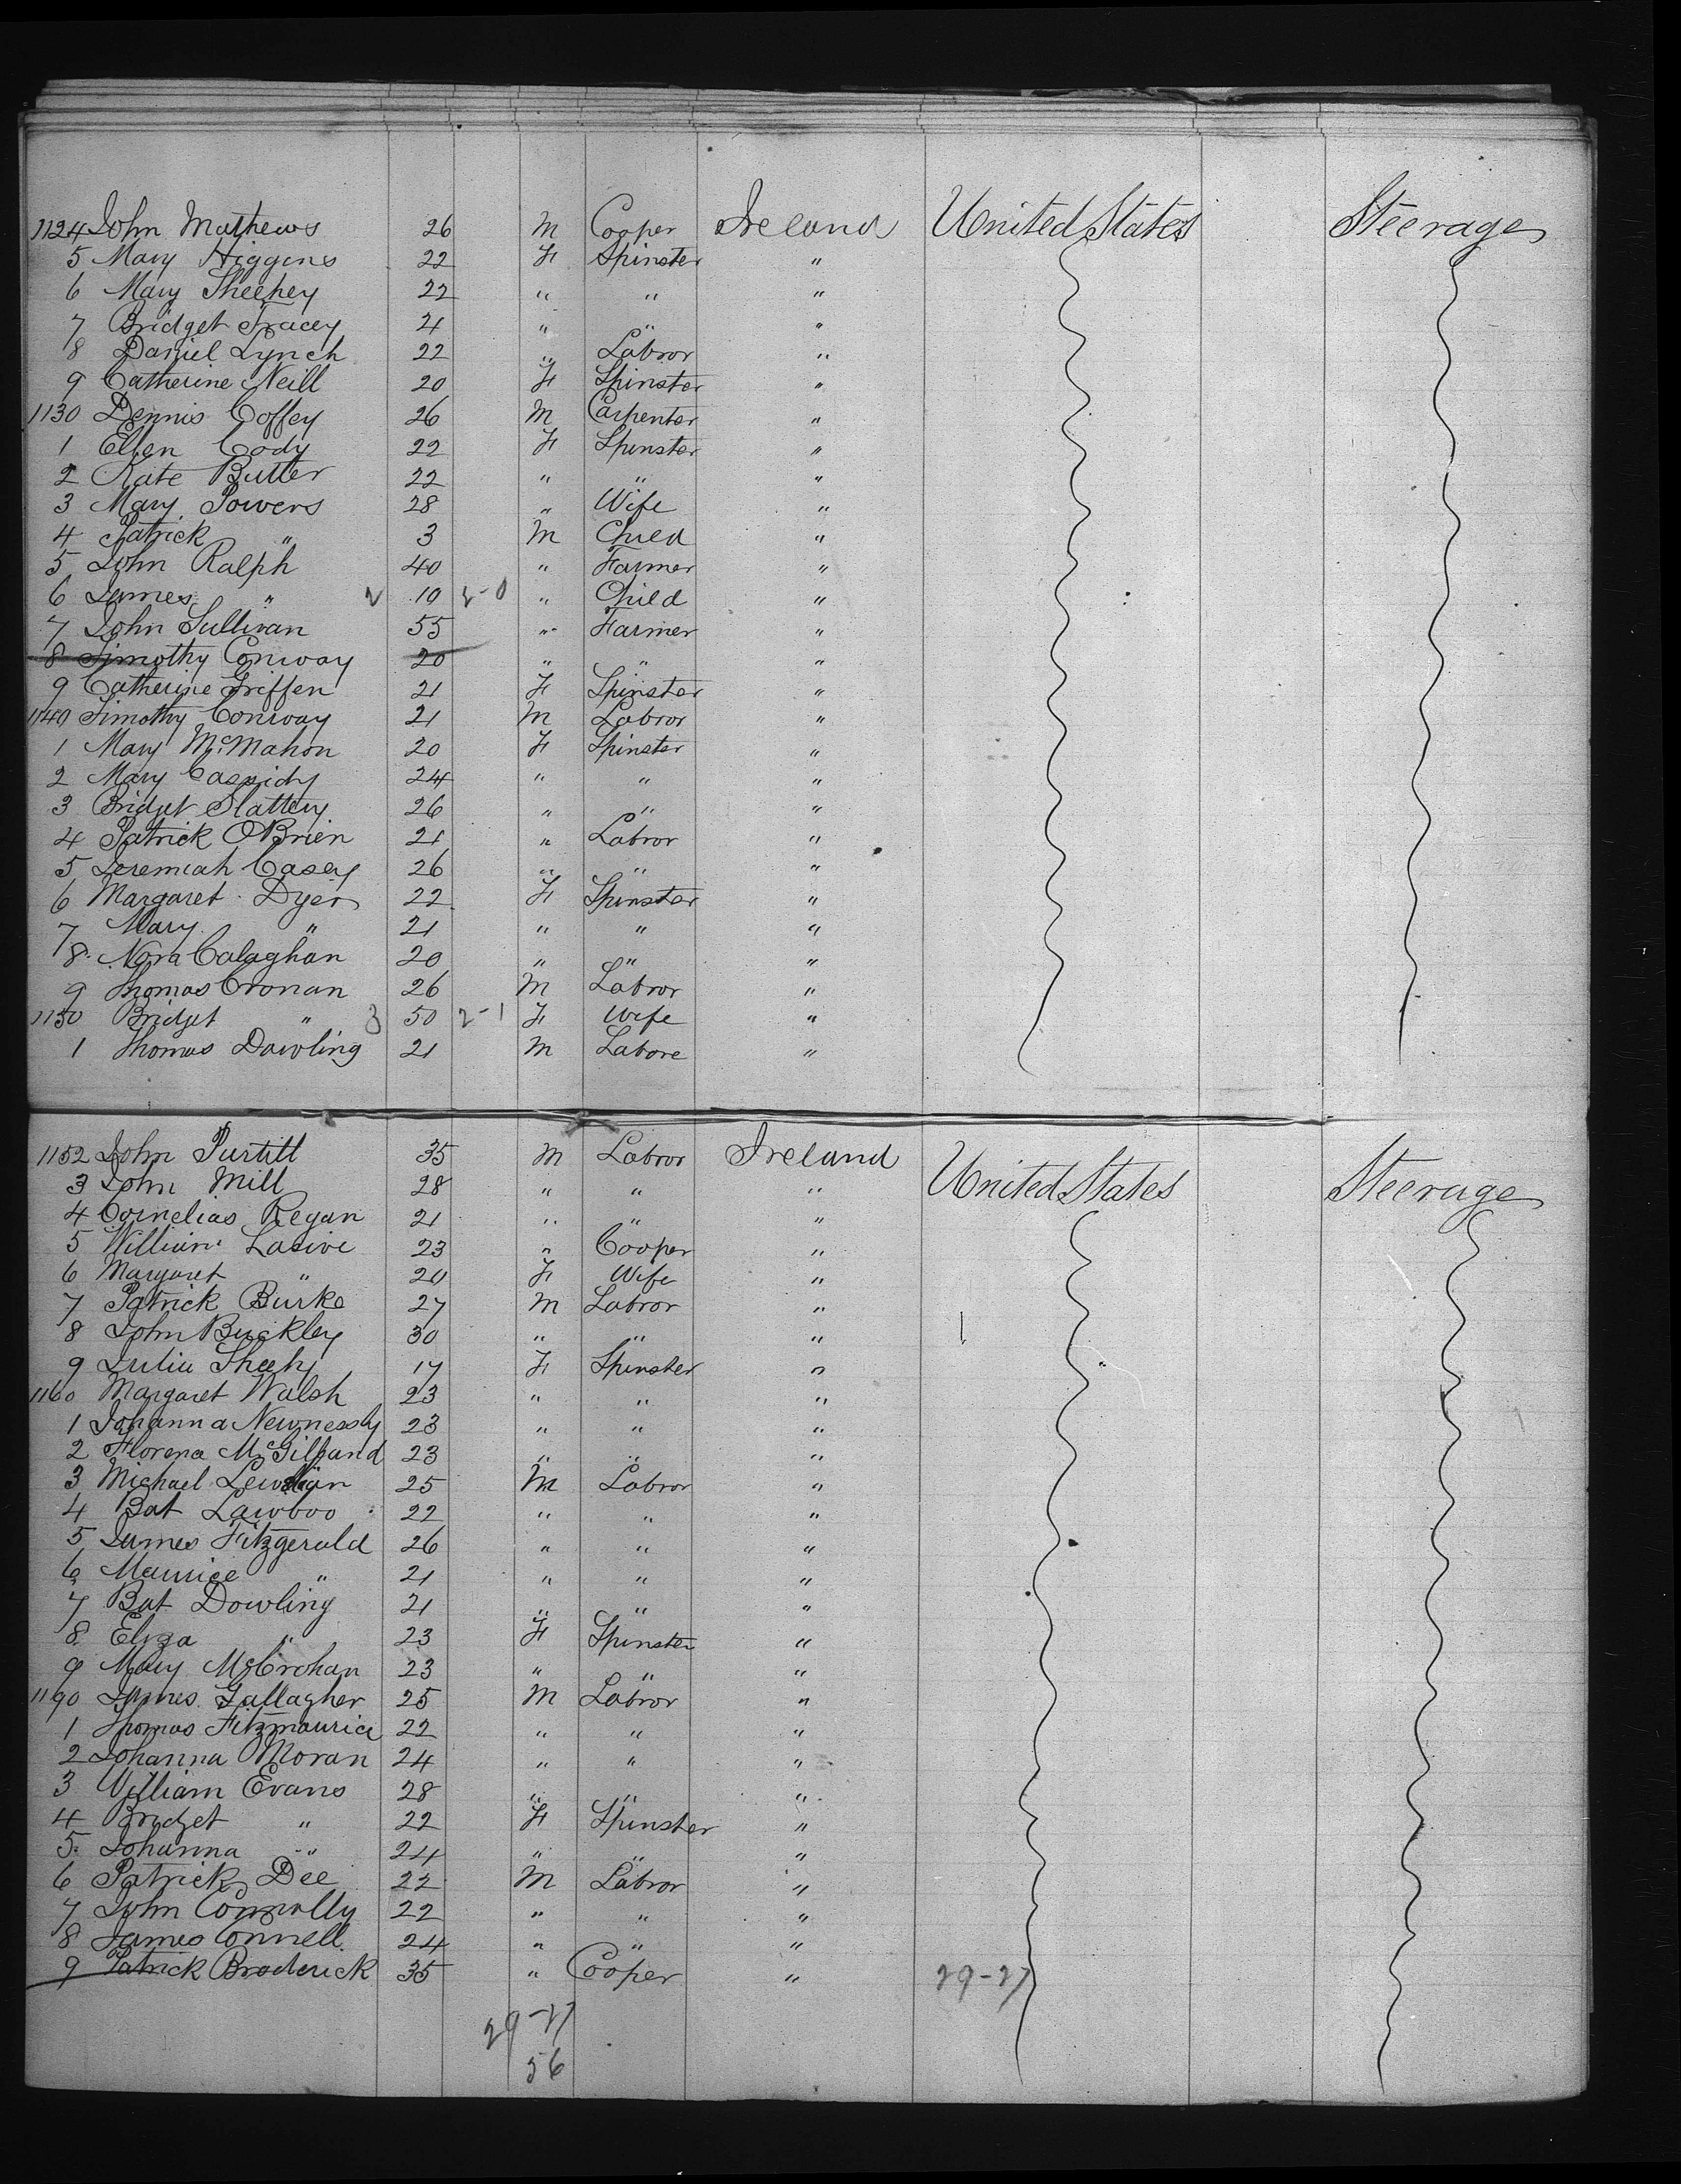 1124 John Mathews 26 M Cooper Ireland United States Steerage
5 Mary Higgins 22 F Spinster "
6 Mary Sheehey 22 " " "
7 Bridget Tracey 21 " " "
8 Daniel Lynch 22 " Labror "
9 Catherine Neill 20 F Spinster "
1130 Dennis Coffey 26 M Carpenter "
1 Ellen Cody 22 F Spinster "
2 Kate Butler 22 " " "
3 Mary Powers 28 " Wife "
4 Patrick " 3 M Child "
5 John Ralph 40 " Farmer "
6 James " 10 " Child "
7 John Sullivan 55 " Farmer "
8 Timothy Conway 20 " " "
9 Catherine Griffen 21 F Spinster "
1140 Timothy Conway 21 M Labror "
1 Mary McMahon 20 F Spinster "
2 Mary Cassidy 24 " " "
3 Bridget Slattery 26 " " "
4 Patrick OBrien 21 " Labror "
5 Jeremiah Casey 26 " " "
6 Margaret Dyer 22 F Spinster "
7 Mary " 21 " " "
8 Nora Calaghan 20 " " "
9 Thomas Cronan 26 M Labror "
1150 Bridget " 3 50 2-1 F Wife "
1 Thomas Dowling 21 M Labore "
1152 John Purtill 35 M Labror Ireland United States Steerage
3 John Mill 28 " " "
4 Cornelias Regan 21 " " "
5 William 23 " Cooper "
6 Margaret " 20 F Wife "
7 Patrick Burke 27 M Labror "
8 John Buckley 30 " " "
9 Julia Sheehy 17 F Spinster "
1160 Margaret Walsh 23 " " "
1 Johanna 23 " " "
2 Florena 23 " " "
3 Michael 25 M Labror "
4 Bat Lawboo 22 " " "
5 James Fitzgerald 26 " " "
6 Maurice " 21 " " "
7 Bat Dowling 21 " " "
8 Eliza " 23 F Spinster "
9 Mary McCrohan 23 " " "
1190 James Gallagher 25 M Labror "
1 Thomas Fitzmaurice 22 " " "
2 Johanna Moran 24 " " "
3 William Evans 28 " " "
4 Bridget " 22 F Spinster "
5 Johanna " 24 " " "
6 Patrick Dee 22 M Labror "
7 John Connolly 22 " " "
8 James Connell 24 " " "
9 Patrick Broderick 35 " Cooper " 29-27
29-27
56